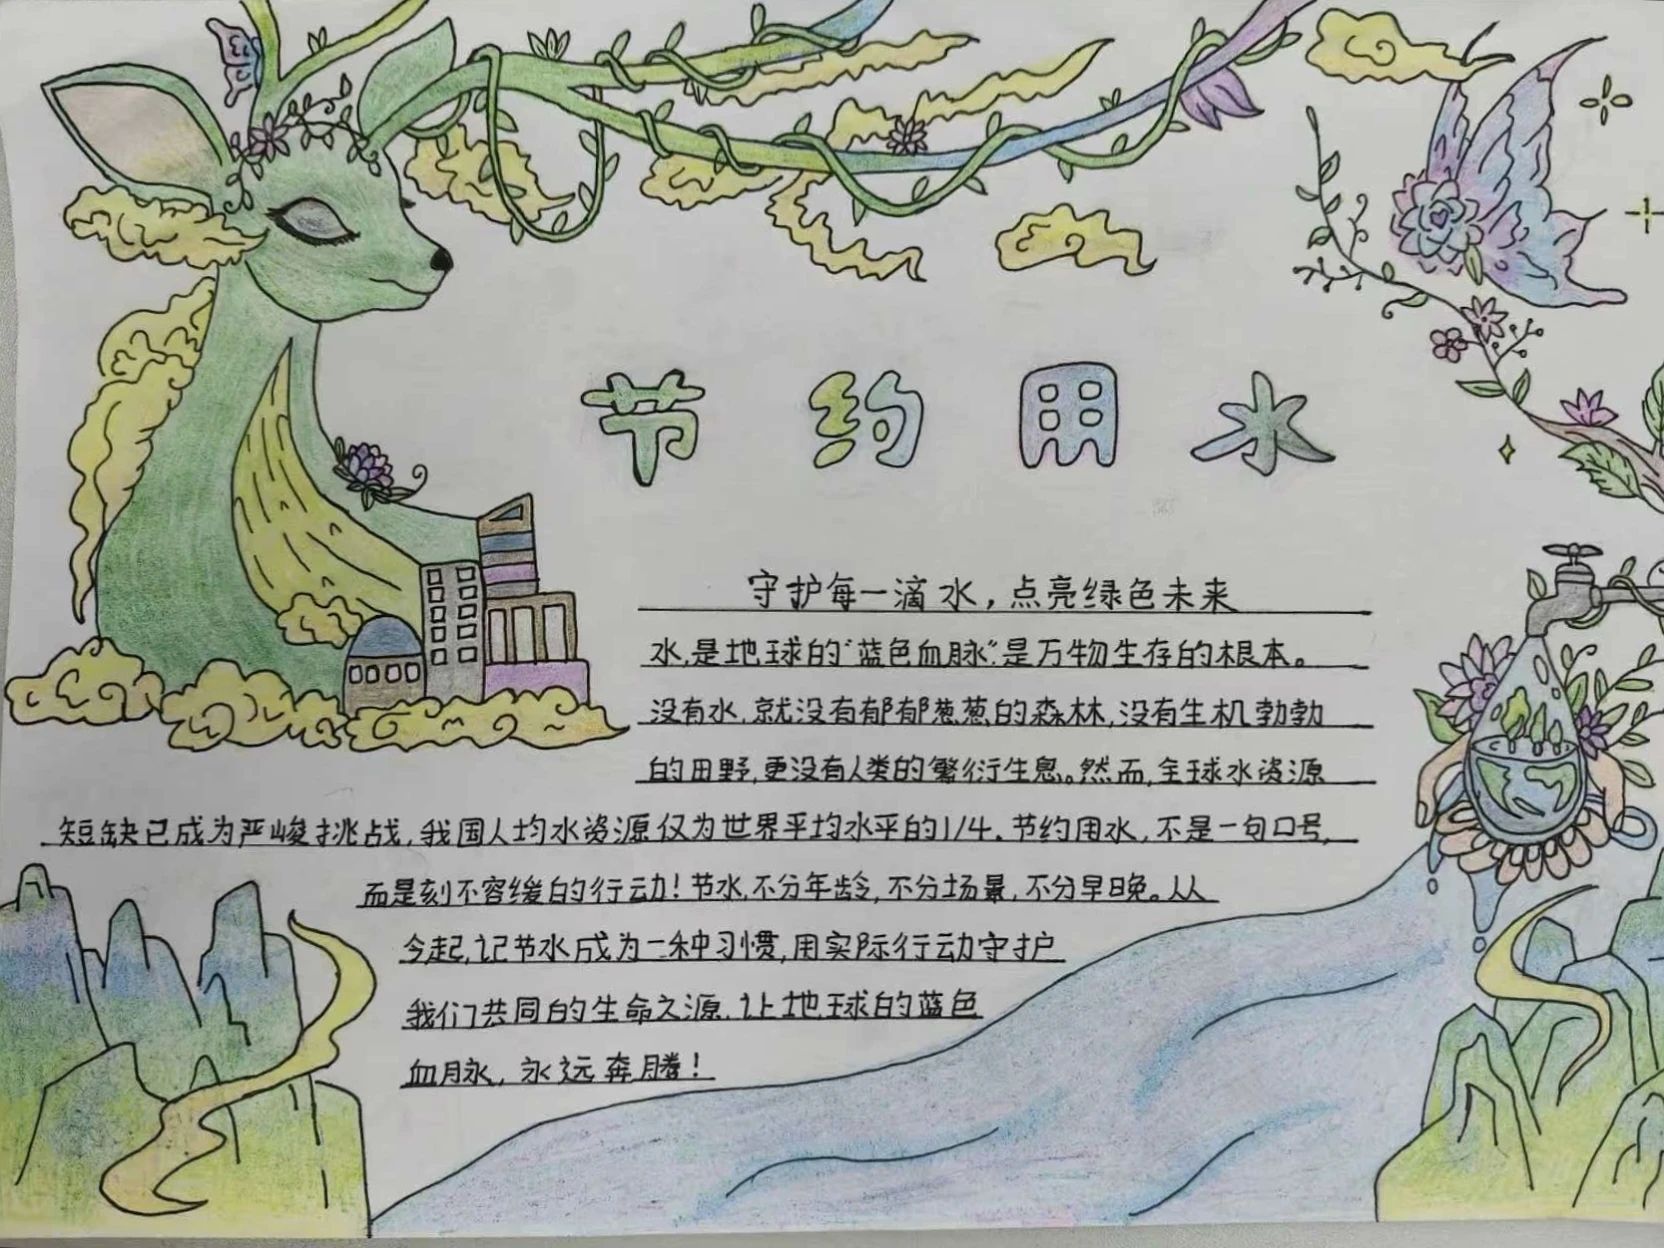 节约用水
守护每一滴水，点亮绿色未来
水,是地球的“蓝色血脉”是万物生存的根本。
没有水,就没有郁郁葱葱的森林,没有生机勃勃
的田野,更没有人类的繁衍生息。然而,全球水资源
短缺已成为严峻挑战,我国人均水资源仅为世界平均水平的1/4.节约用水,不是一句口号,
而是刻不容缓的行动!节水,不分年龄,不分场景,不分早晚。从
今起,让节水成为一种习惯,用实际行动守护
我们共同的生命之源.让地球的蓝色
血脉,永远奔腾!